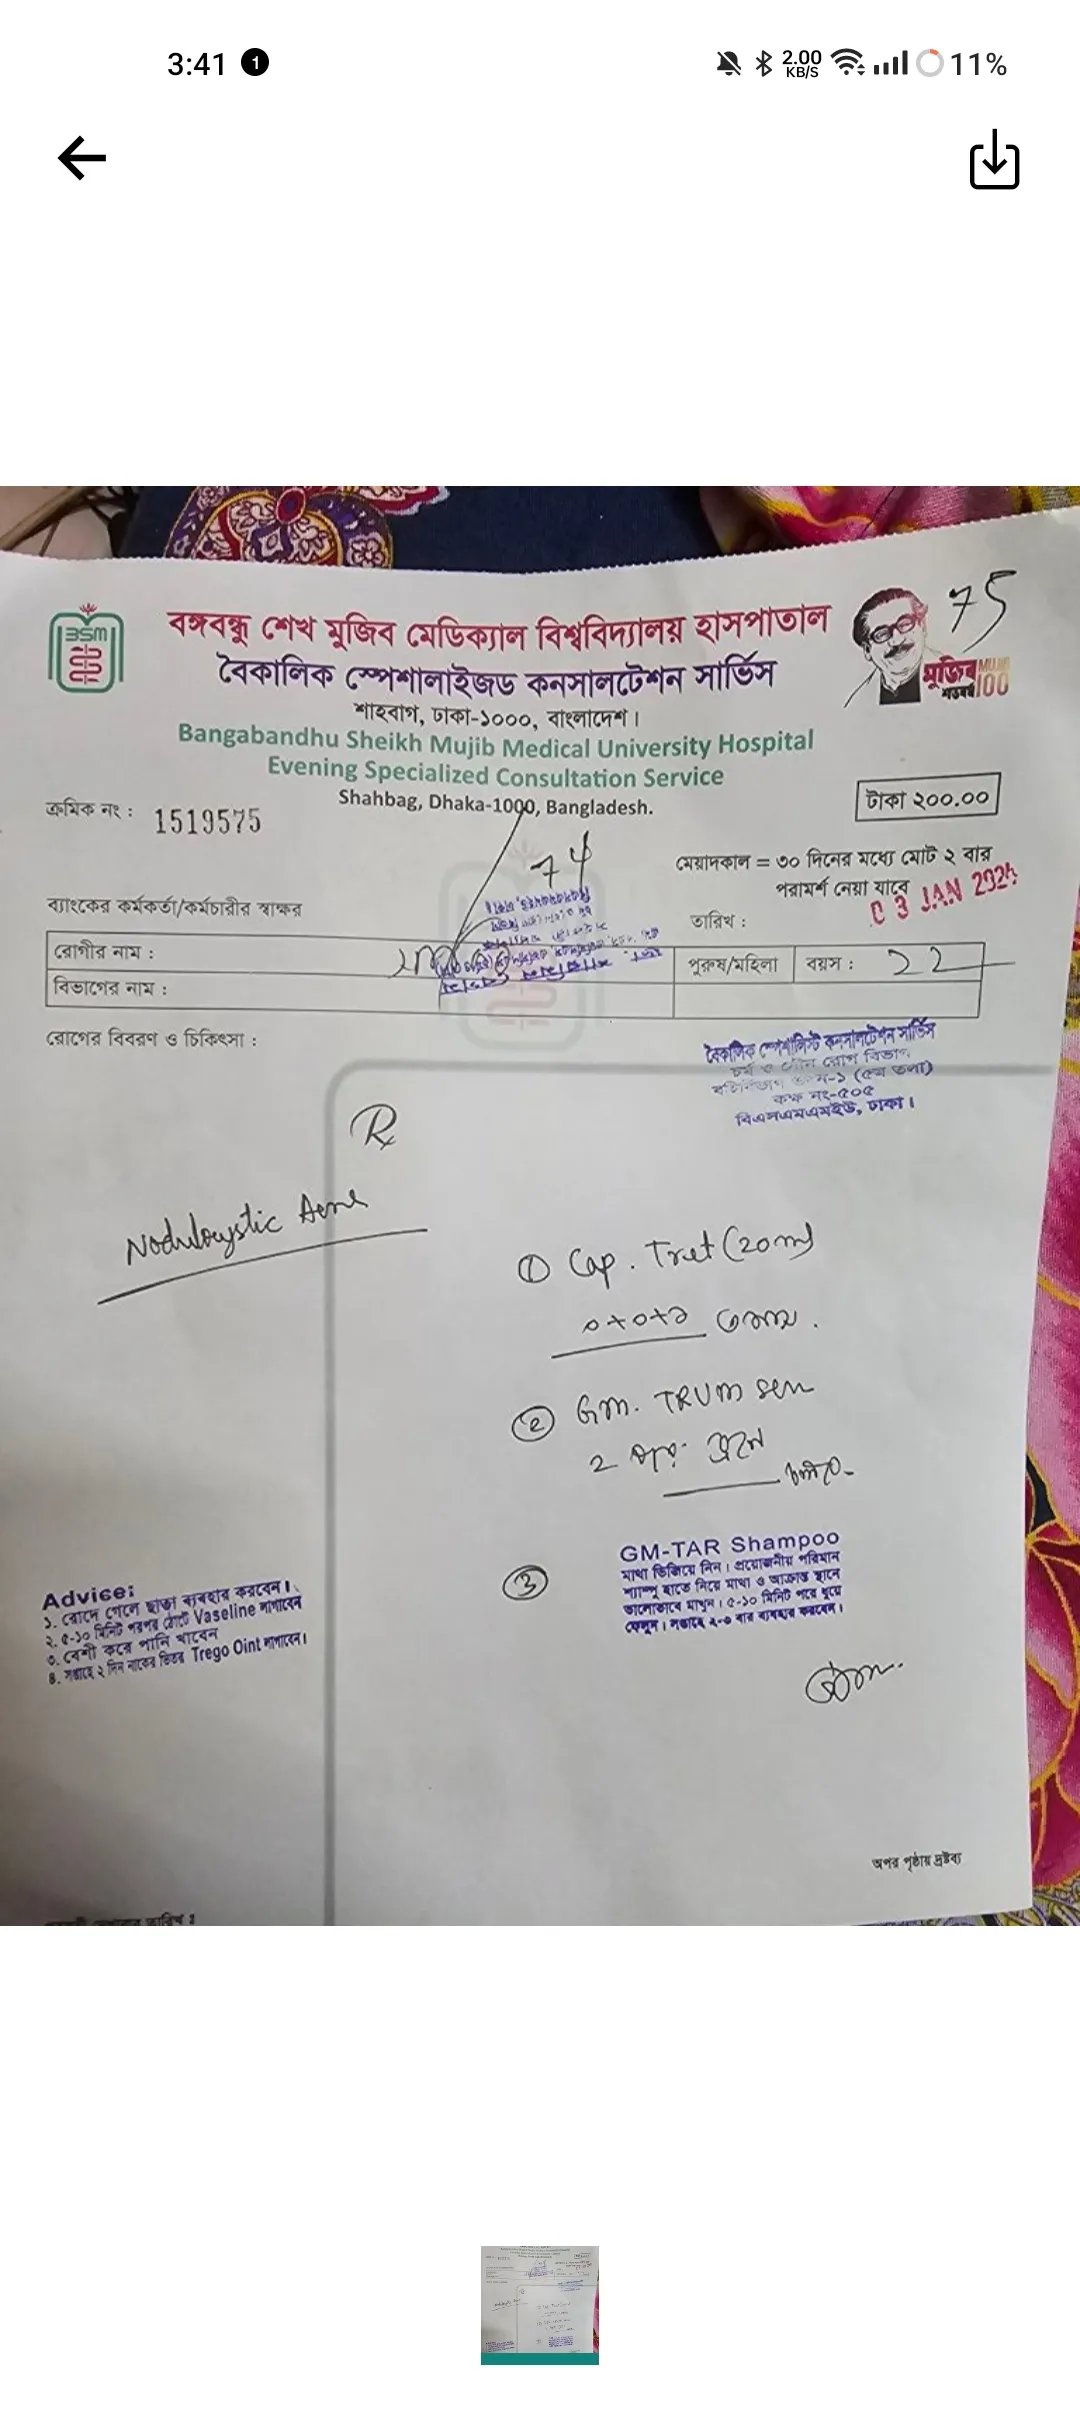 3:41 1
2.00 KB/S 11%
75
BSM
বঙ্গবন্ধু শেখ মুজিব মেডিক্যাল বিশ্ববিদ্যালয় হাসপাতাল
বৈকালিক স্পেশালাইজড কনসালটেশন সার্ভিস
মুজিব শতবর্ষ MUJIB 100
শাহবাগ, ঢাকা-১০০০, বাংলাদেশ।
Bangabandhu Sheikh Mujib Medical University Hospital
Evening Specialized Consultation Service
Shahbag, Dhaka-1000, Bangladesh.
টাকা ২০০.০০
ক্রমিক নং : 1519575
মেয়াদকাল = ৩০ দিনের মধ্যে মোট ২ বার
পরামর্শ নেয়া যাবে
ব্যাংকের কর্মকর্তা/কর্মচারীর স্বাক্ষর
তারিখ : 03 JAN
রোগীর নাম :
পুরুষ/মহিলা
বয়স : 22
বিভাগের নাম :
রোগের বিবরণ ও চিকিৎসা :
বৈকালিক স্পেশালিস্ট কনসালটেশন সার্ভিস
চর্ম ও যৌন রোগ বিভাগ
বহির্বিভাগ -১ (৫ম তলা)
কক্ষ নং-৫০৫
বিএসএমএমইউ, ঢাকা।
Rx
Nodulocystic Acne
① Cap. Tret (20m)
০+০+১
② Gm. TRUM
③ GM-TAR Shampoo
মাথা ভিজিয়ে নিন। প্রয়োজনীয় পরিমান
শ্যাম্পু হাতে নিয়ে মাথা ও আক্রান্ত স্থানে
ভালোভাবে মাখুন। ৫-১০ মিনিট পরে ধুয়ে
ফেলুন। সপ্তাহে ২-৩ বার ব্যবহার করবেন।
Advise:
১. রোদে গেলে ছাতা ব্যবহার করবেন।
২. ৫-১০ মিনিট পরপর ঠোটে Vaseline লাগাবেন
৩. বেশী করে পানি খাবেন
৪. সপ্তাহে ২ দিন নাকের ভিতর Trego Oint লাগাবেন।
অপর পৃষ্ঠায় দ্রষ্টব্য